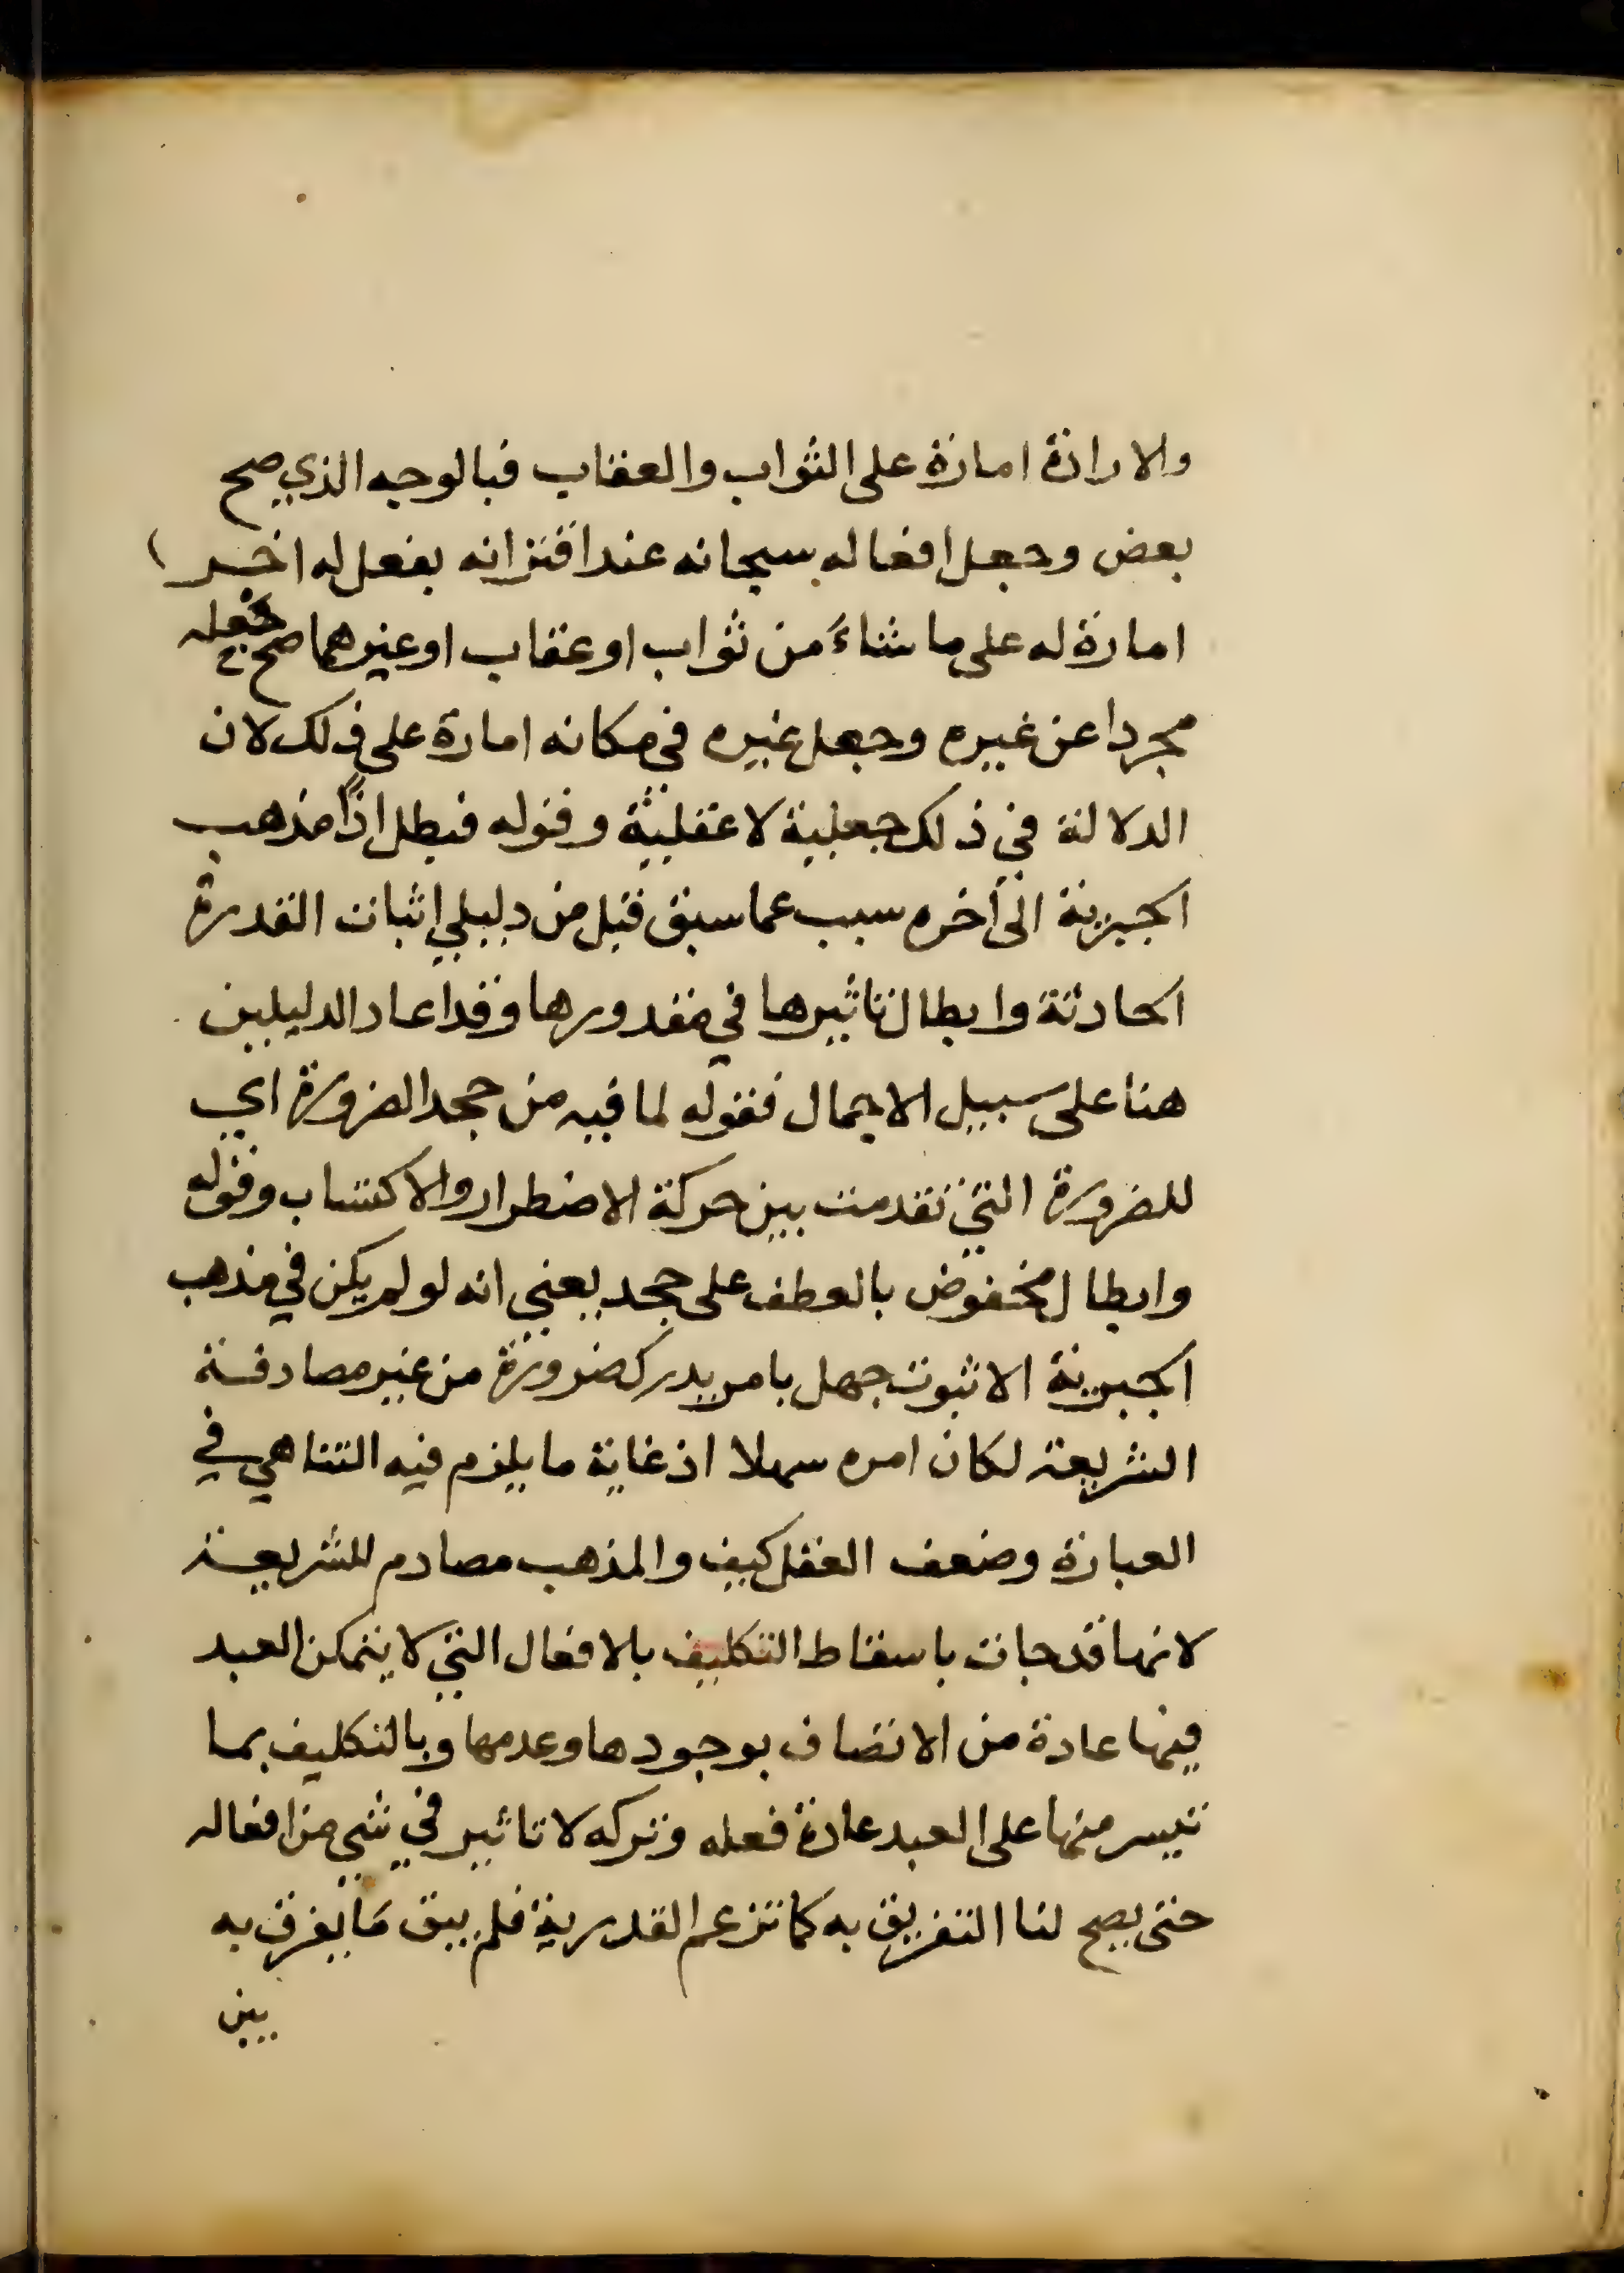 والارادة امارة على الثواب والعقاب فبالوجه الذي صح
بعض وجعل افعاله سبحانه عند اقترانه بفعل له اخر
امارة له على ما شاءَ من ثواب او عقاب او غيرهما صح جعله
مجردا عن غيره وجعل غيره في مكانه امارة على ذلك لان
الدلالة في ذلك جعلية لا عقلية وقوله فبطل اذًا مذهب
الجبرية الى آخره سبب عما سبق قبل من دليلي اثبات القدرة
الحادثة وابطال تاثيرها في مقدورها وقد اعاد الدليلين
هنا على سبيل الاجمال فقوله لما فيه من جحد الضرورة اي
للضرورة التي تقدمت بين حركة الاضطرار والاكتساب وقوله
وابطال مخفوض بالعطف على جحد يعني انه لو لم يكن في مذهب
الجبرية الا ثبوت جهل بامر يدرك ضرورة من غير مصادفة
الشريعة لكان امره سهلا اذ غاية ما يلزم فيه التناهي في
العبارة وضعف العقل كيف والمذهب مصادم للشريعة
لانها قد جات باسقاط التكليف بالافعال التي لا يتمكن العبد
فيها عادة من الاتصاف بوجودها وعدمها وبالتكليف بما
تيسر منها على العبد عادة فعله وتركه لا تاثير في شي من افعاله
حتى يصح لنا التفريق به كما تزعم القدرية فلم يبق مَا يفرق به
بين